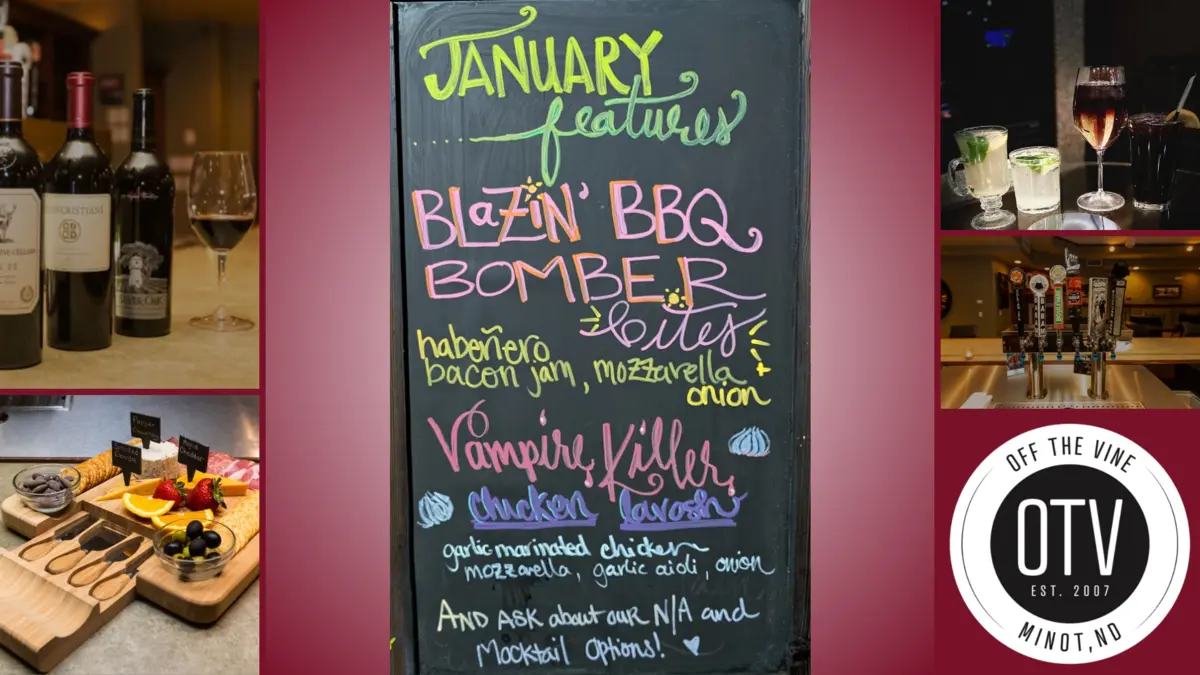 JANUARY
features
BLaZiN' BBQ
BOMBER
bites
habeñero
bacon jam, mozzarella
onion
Vampire Killer
chicken lavosh
garlic marinated chicken
mozzarella, garlic aioli, onion
AND ASK about our N/A and
Mocktail Options!
SILVER OAK
OFF THE VINE
OTV
EST. 2007
MINOT, ND